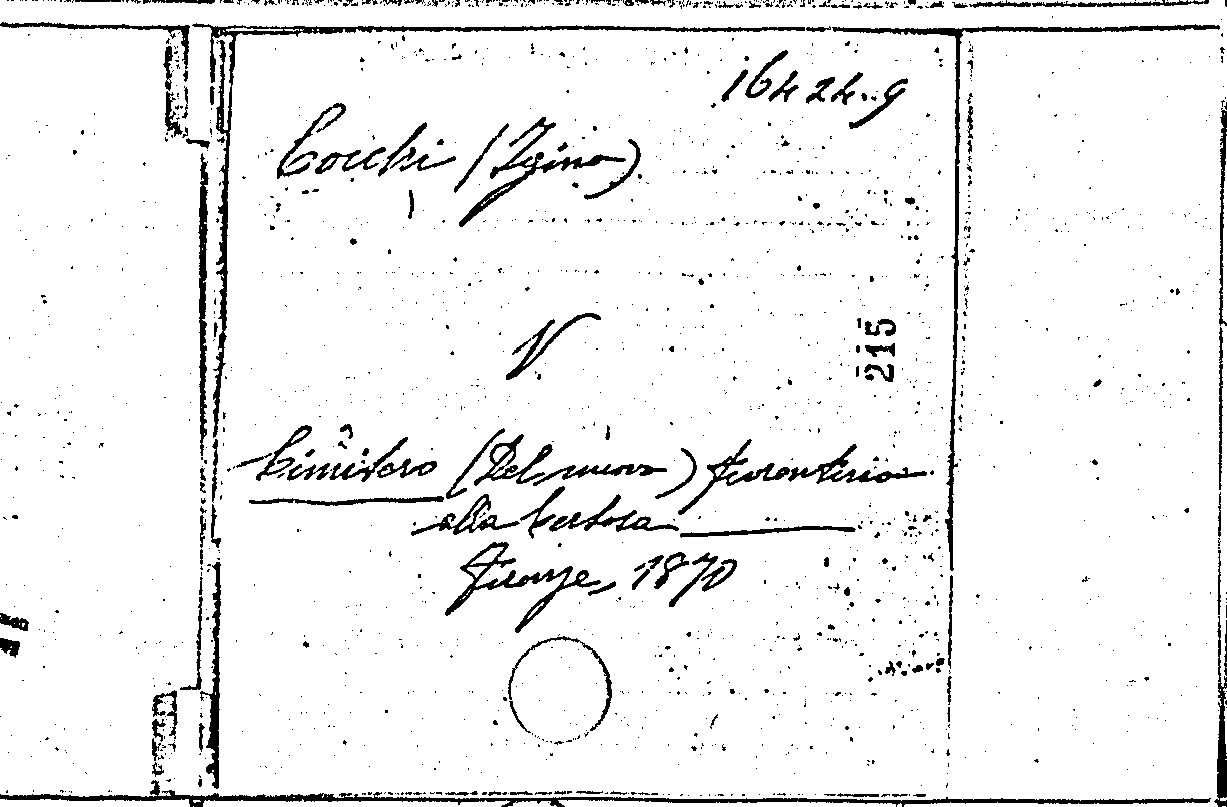 16424..9
Cocchi (Igino)
V
2
Cimitero (Del nuovo) fiorentino
alla Certosa
Firenze, 1870
215